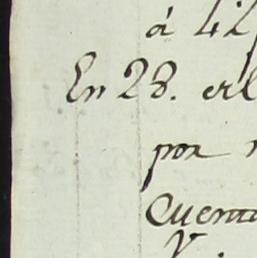 á 42
En 28. del
por
Cuenta
Y